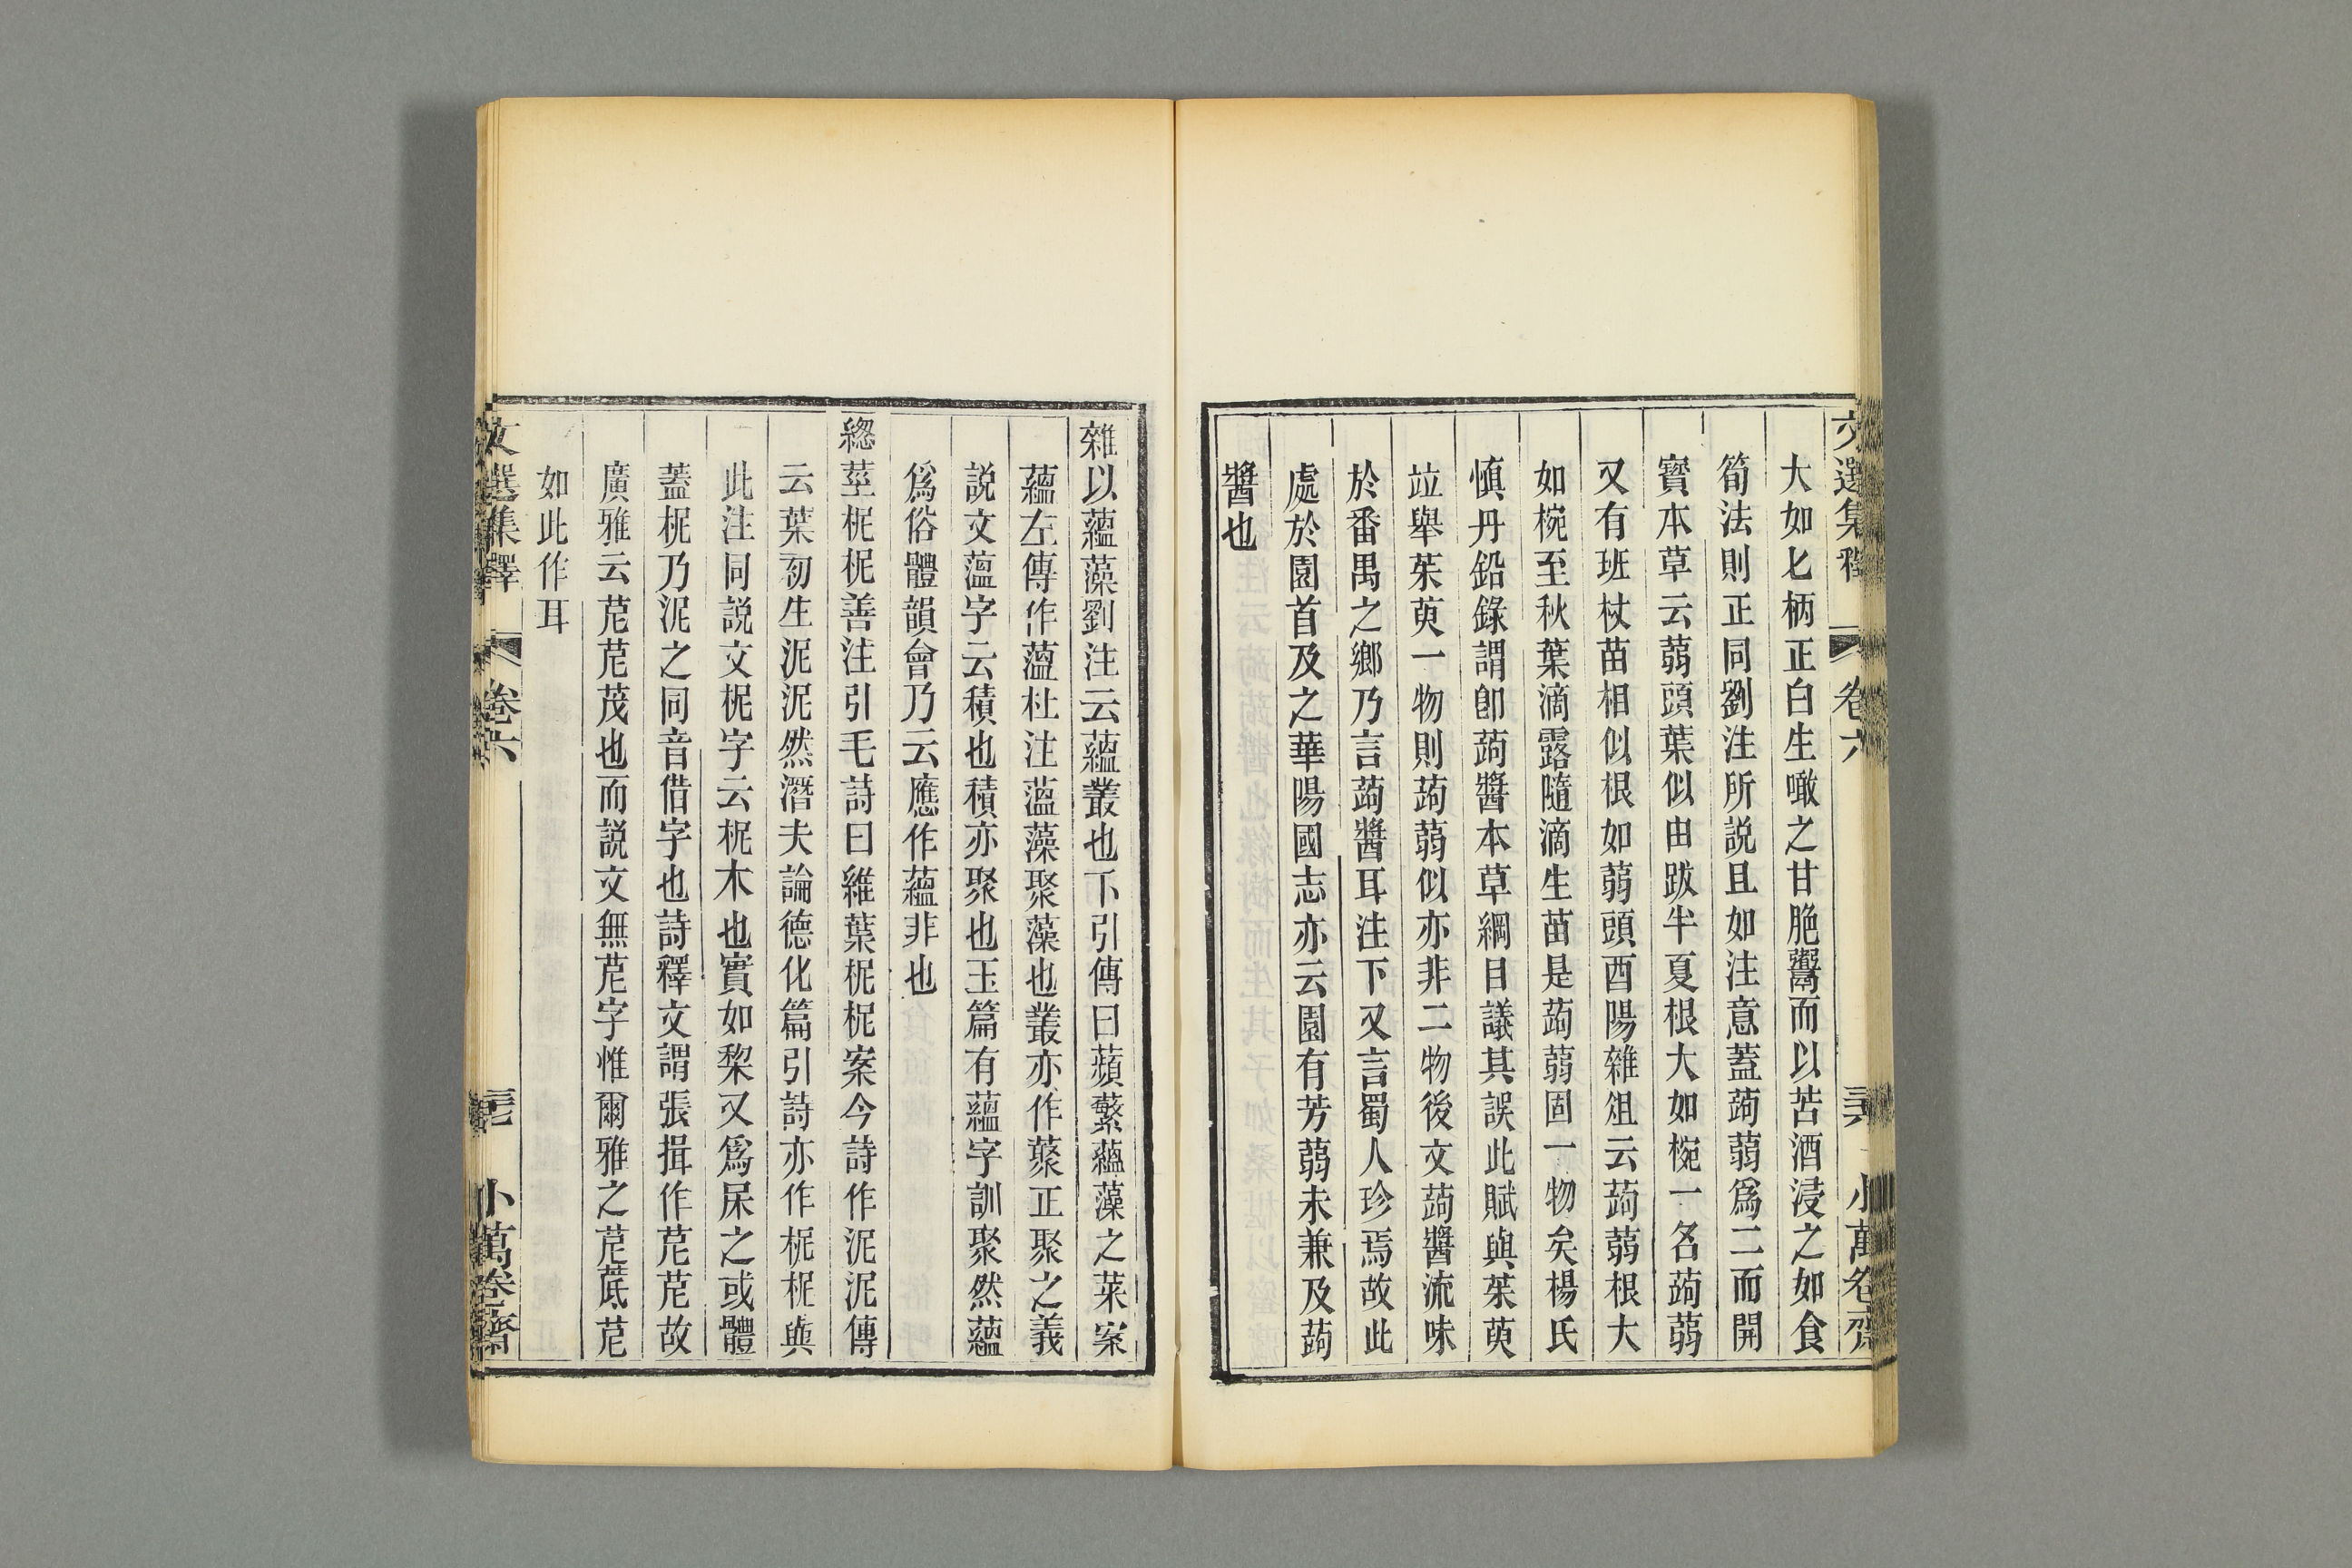 文選集釋 卷六 三六 小萬卷齋
大如匕柄正白生噉之甘脆鬻而以苦酒浸之如食
筍法則正同劉注所說且如注意蓋蒟蒻爲二而開
寶本草云蒻頭葉似由跋半夏根大如椀一名蒟蒻
又有班杖苗相似根如蒻頭酉陽雜俎云蒟蒻根大
如椀至秋葉滴露隨滴生苗是蒟蒻固一物矣楊氏
慎丹鉛錄謂卽蒟醬本草綱目議其誤此賦與茱萸
竝舉茱萸一物則蒟蒻似亦非二物後文蒟醬流味
於番禺之鄉乃言蒟醬耳注下又言蜀人珍焉故此
處於園首及之華陽國志亦云園有芳蒻未兼及蒟
醬也
雜以蘊藻劉注云蘊叢也下引傳曰蘋蘩蘊藻之菜案
蘊左傳作薀杜注薀藻聚藻也叢亦作藂正聚之義
說文薀字云積也積亦聚也玉篇有蘊字訓聚然蘊
爲俗體韻會乃云應作蘊非也
緫莖柅柅善注引毛詩曰維葉柅柅案今詩作泥泥傳
云葉初生泥泥然潛夫論德化篇引詩亦作柅柅與
此注同說文柅字云柅木也實如棃又爲杘之或體
蓋柅乃泥之同音借字也詩釋文謂張揖作苨苨故
廣雅云苨苨茂也而說文無苨字惟爾雅之苨菧苨
如此作耳
文選集釋 卷六 三七 小萬卷齋